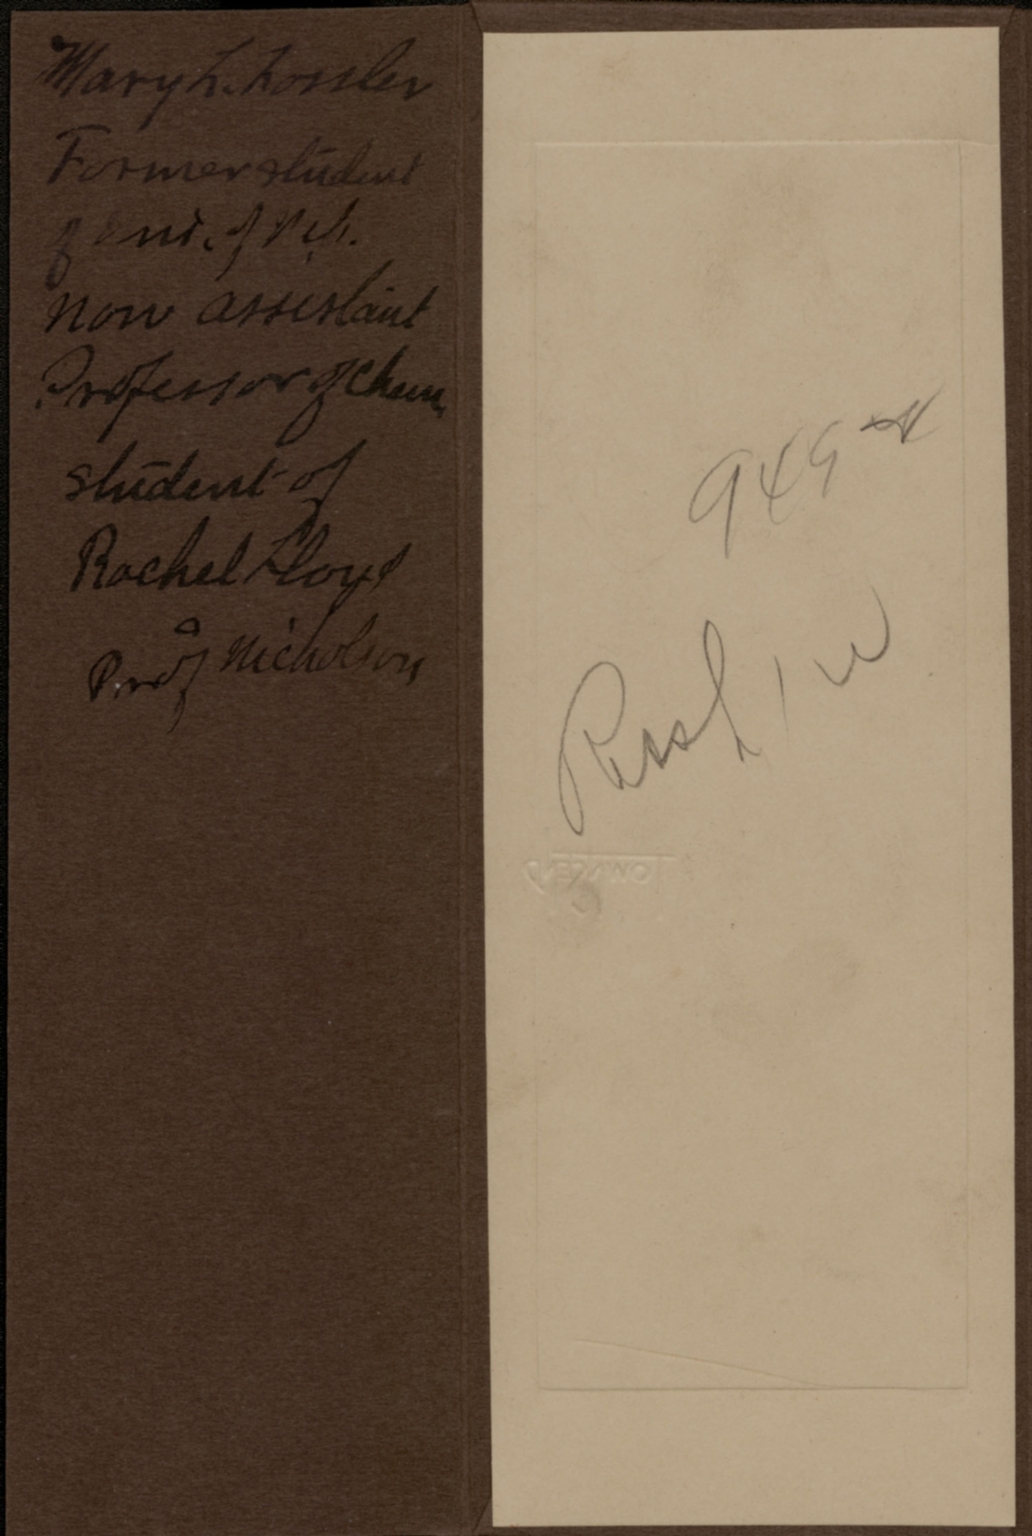 Mary L. Fossler
Former student
of Uni. of Neb.
now assistant
Professor of Chem.
student of
Rachel Lloyd
Prof Nicholson
949
TOWNSEND